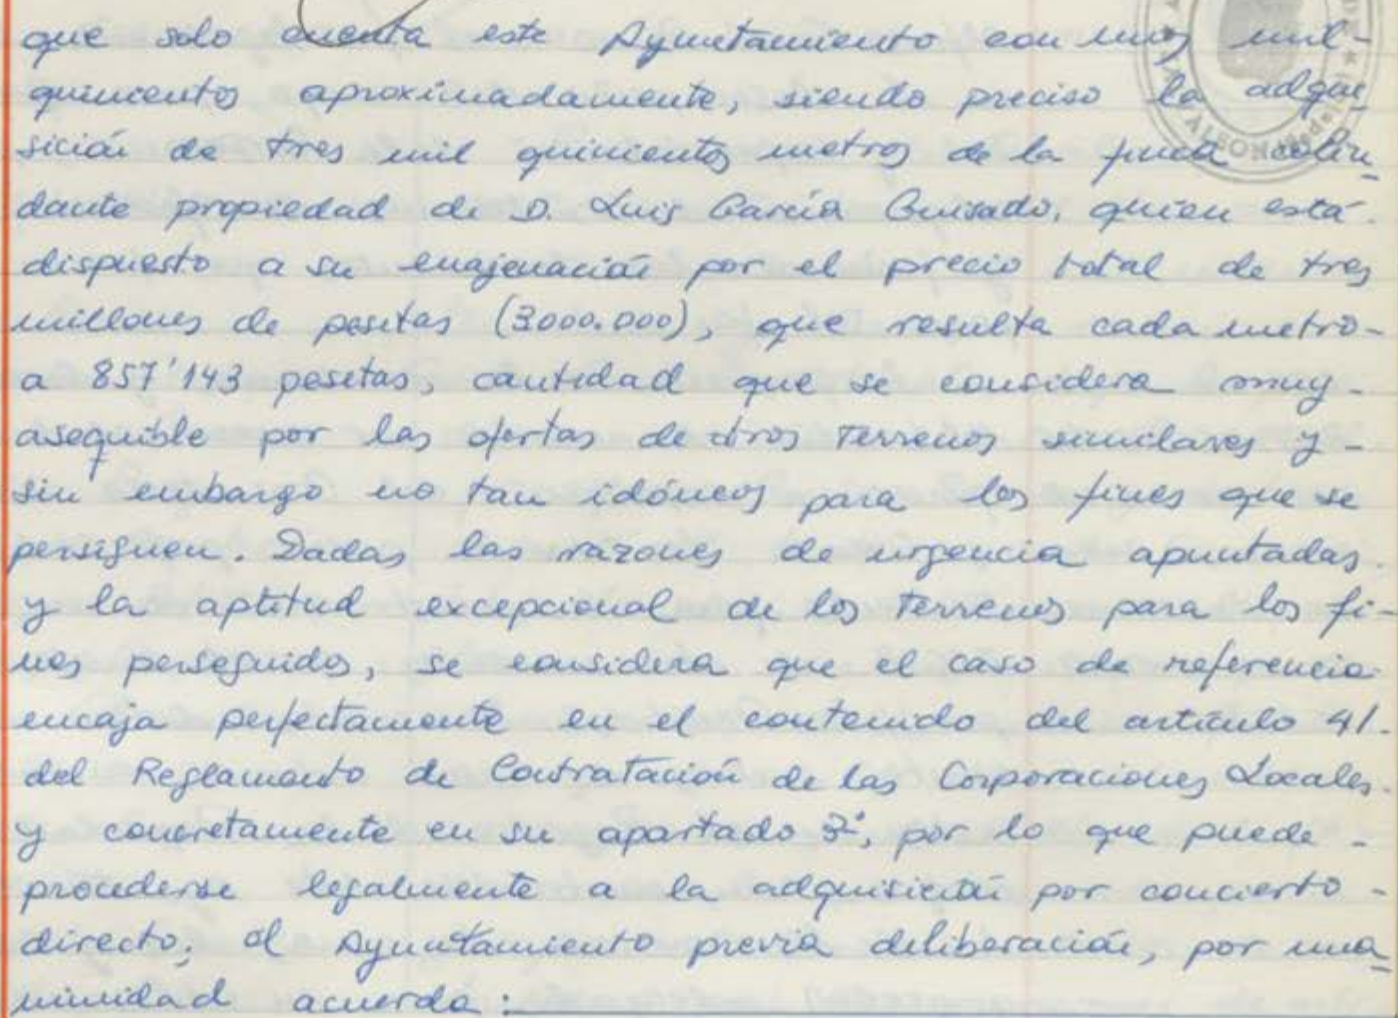 que solo cuenta este Ayuntamiento con unos mil-
quinientos aproximadamente, siendo preciso la adqui
sición de tres mil quinientos metros de la finca colin_
dante propiedad de D. Luis García Guisado, quien está.
dispuesto a su enajenación por el precio total de tres
millones de pesetas (3.000.000), que resulta cada metro-
a 857'143 pesetas, cantidad que se considera muy-
asequible por las ofertas de otros terrenos similares y-
sin embargo no tan idóneos para los fines que se
persiguen. Dadas las razones de urgencia apuntadas.
y la aptitud excepcional de los terrenos para los fi-
nes perseguidos, se considera que el caso de referencia
encaja perfectamente en el contenido del artículo 41.
del Reglamento de Contratación de las Corporaciones Locales.
y concretamente en su apartado 3º, por lo que puede-
procederse legalmente a la adquisición por concierto-
directo; el Ayuntamiento previa deliberación, por una_
nimidad acuerda: